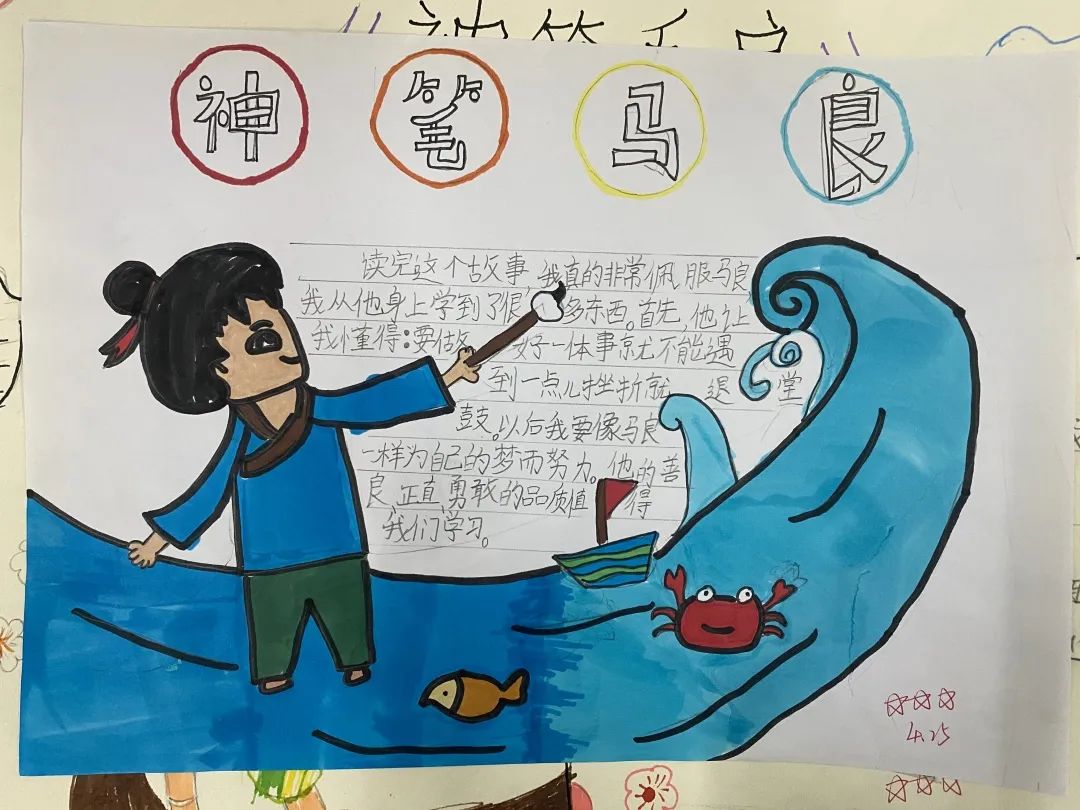 神笔马良
读完这个故事,我真的非常佩服马良,
我从他身上学到了很多东西。首先,他让
我懂得:要做好一体事就不能遇
到一点儿挫折就退堂
鼓。以后我要像马良
一样为自己的梦而努力。他的善
良、正直、勇敢的品质值得
我们学习。
4.25